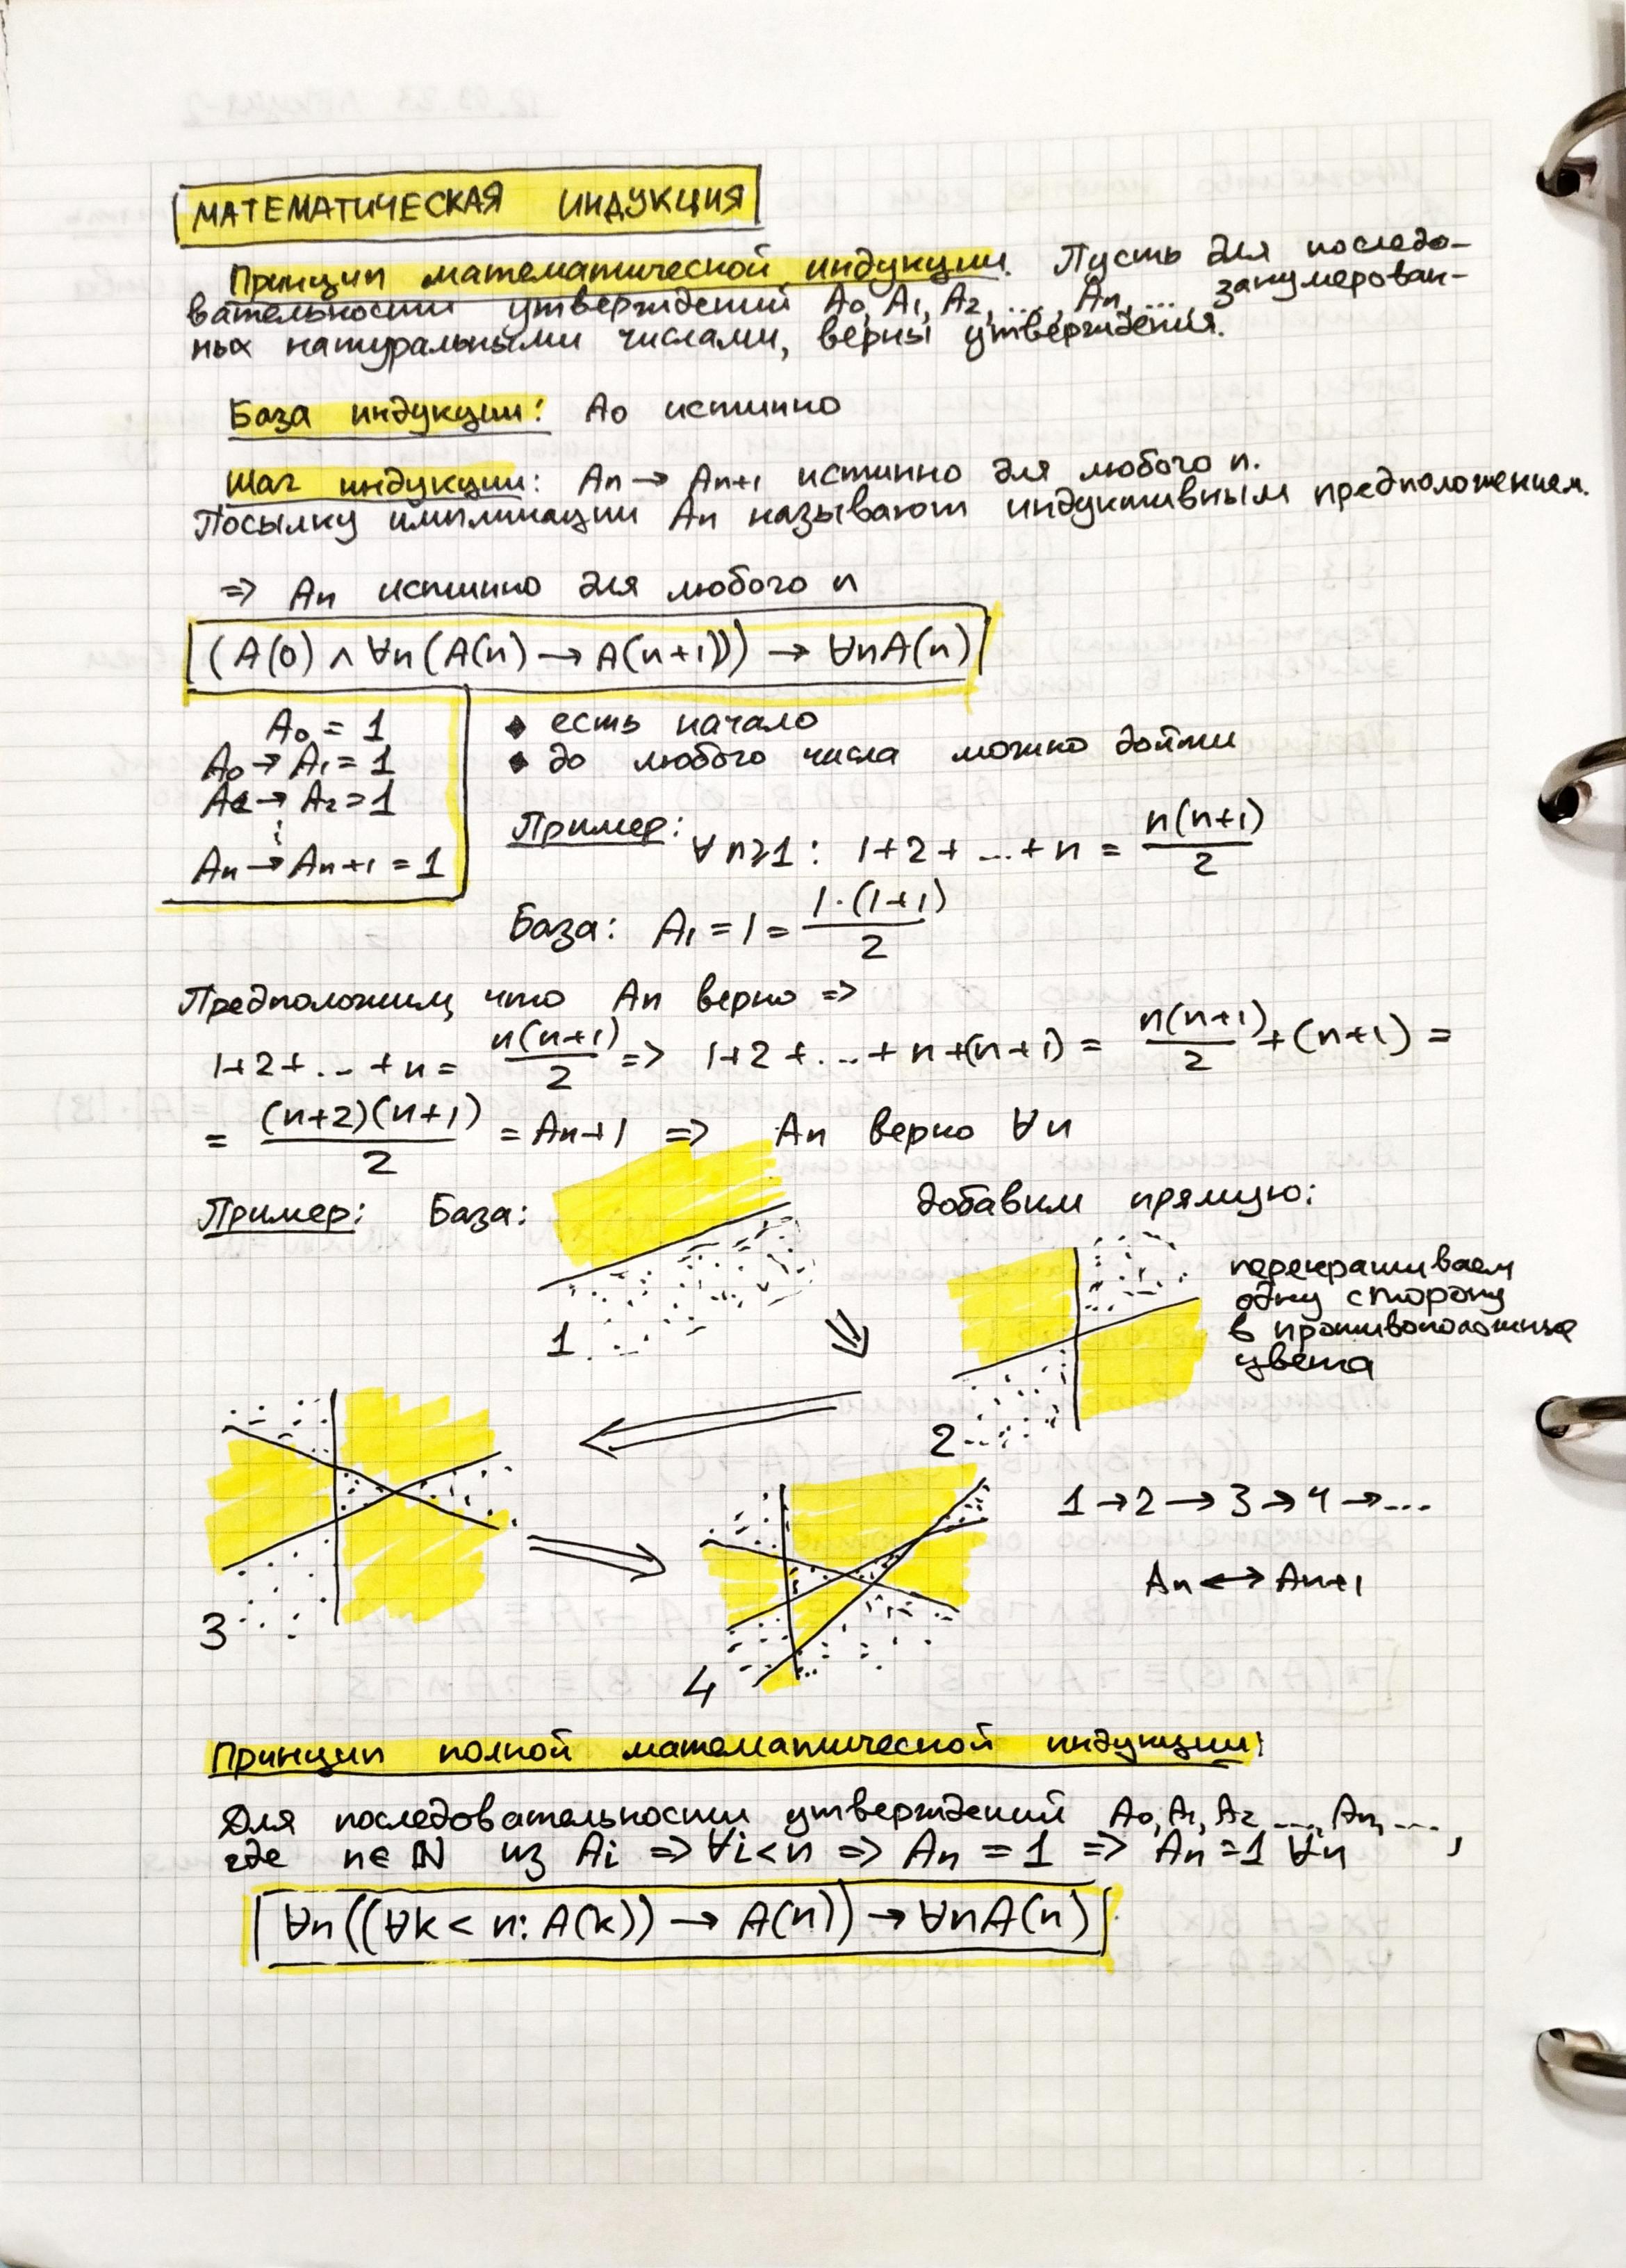 МАТЕМАТИЧЕСКАЯ ИНДУКЦИЯ
Принцип математической индукции. Пусть для последо-
вательности утверждений A₀, A₁, A₂, ..., Aₙ, ..., занумерован-
ных натуральными числами, верны утверждения.
База индукции: A₀ истинно
Шаг индукции: Aₙ → Aₙ₊₁ истинно для любого n.
Посылку импликации Aₙ называют индуктивным предположением.
=> Aₙ истинно для любого n
(A(0) ∧ ∀n(A(n) → A(n+1))) → ∀nA(n)
A₀ = 1
A₀ → A₁ = 1
A₁ → A₂ = 1
⋮
Aₙ → Aₙ₊₁ = 1
◆ есть начало
◆ до любого числа можно дойти
Пример: ∀n≥1: 1+2+...+n = n(n+1)/2
База: A₁ = 1 = 1·(1+1)/2
Предположим, что Aₙ верно =>
1+2+...+n = n(n+1)/2 => 1+2+...+n+(n+1) = n(n+1)/2 + (n+1) =
= (n+2)(n+1)/2 = Aₙ₊₁ => Aₙ верно ∀n
Пример: База:
добавим прямую:
1
перекрашиваем
одну сторону
в противоположные
цвета
2
3
4
1 → 2 → 3 → 4 → ...
Aₙ ↔ Aₙ₊₁
Принцип полной математической индукции:
Для последовательности утверждений A₀, A₁, A₂, ..., Aₙ, ...,
где n ∈ ℕ из Aᵢ => ∀i<n => Aₙ = 1 => Aₙ = 1 ∀n
∀n((∀k < n: A(k)) → A(n)) → ∀nA(n)